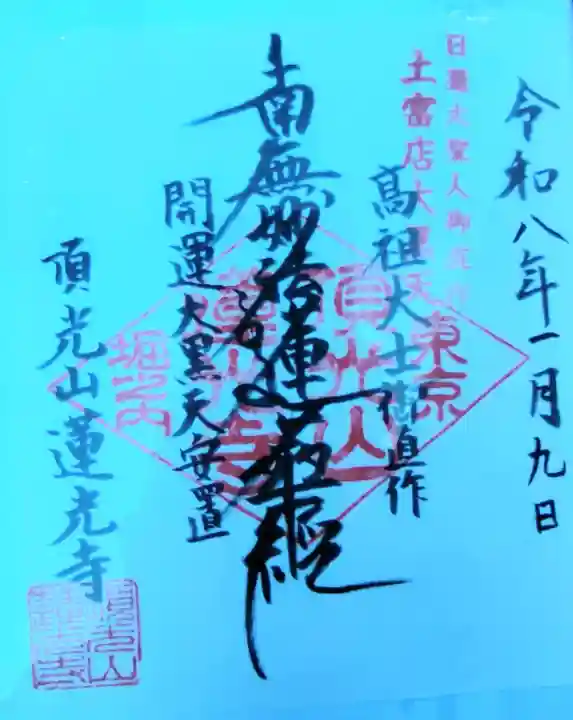 令和八年一月九日
日蓮大聖人御直作
土富店大黒天
高祖大士御直作
南無妙法蓮華経
開運大黒天安置
頂光山蓮光寺
東京
堀之内